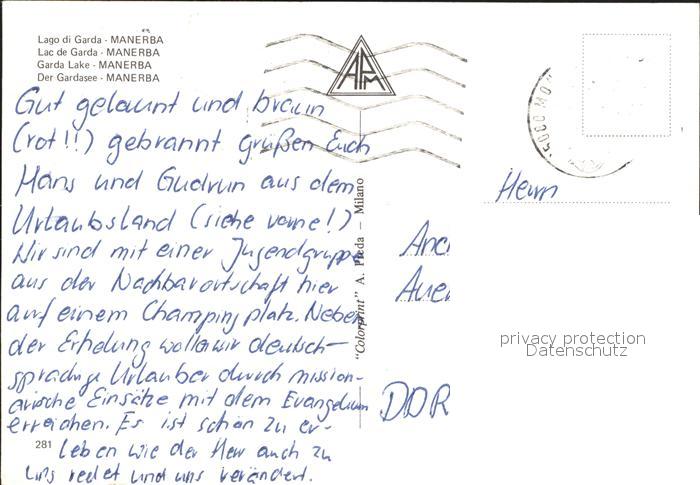 Lago di Garda - MANERBA
Lac de Garda - MANERBA
Garda Lake - MANERBA
Der Gardasee - MANERBA
APM
Gut gelaunt und braun
(rot!!) gebrannt grüßen Euch
Hans und Gudrun aus dem
Urlaubsland (siehe vorne!)
Wir sind mit einer Jugendgruppe
aus der Nachbarortschaft hier
auf einem Champingplatz. Neben
der Erholung wollen wir deutsch-
sprachige Urlauber durch mission-
arische Einsätze mit dem Evangelium
erreichen. Es ist schön zu er-
leben wie der Herr auch zu
uns redet und uns verändert.
281
"Colorprint" A. Preda - Milano
Herrn
DDR
privacy protection
Datenschutz